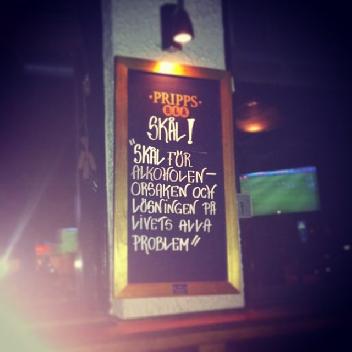 PRIPPS
BLÅ
SKÅL!
"SKÅL FÖR
ALKOHOLEN-
ORSAKEN OCH
LÖSNINGEN PÅ
LIVETS ALLA
PROBLEM"